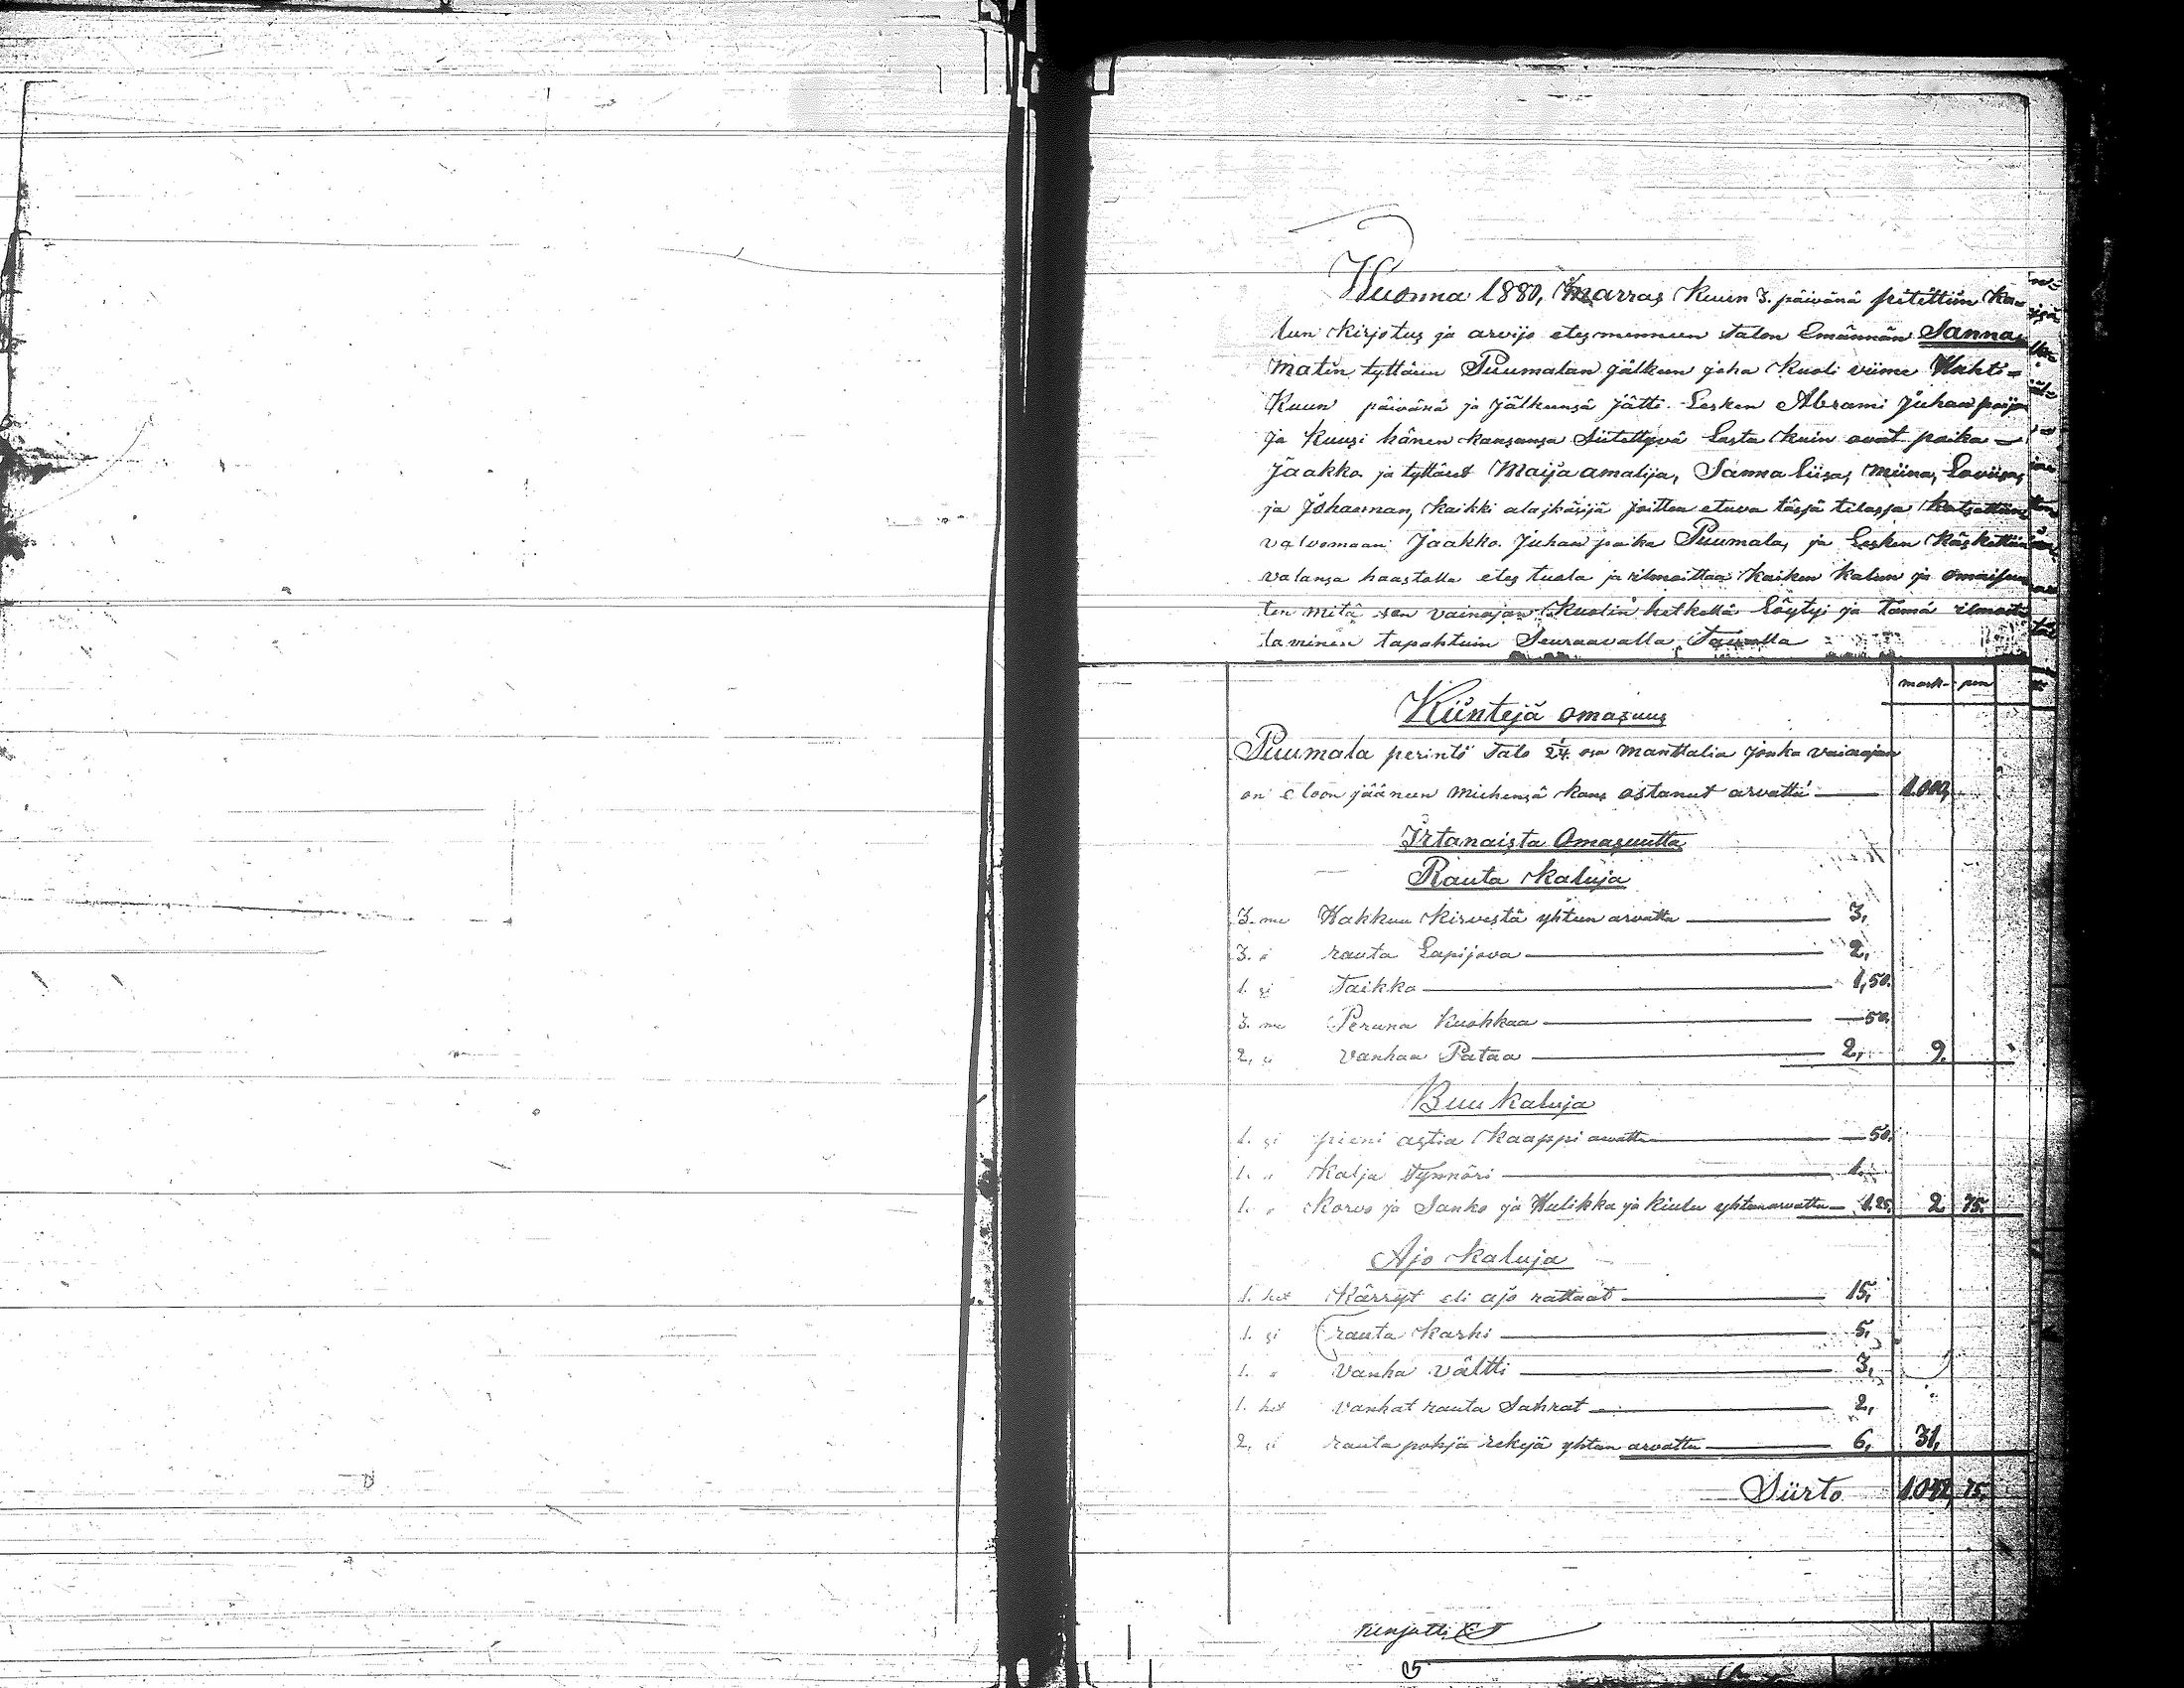 Wuonna 1880, Marras Kuun 3. päivänä pitettiin Ka-
lun Kirjotus ja arvijo etesmenneen talon Emännän Sannas
Matin tyttären Puumalan jälkeen joka Kuoli viime Huhti=
Kuun päivänä ja Jälkeensä Jätti Lesken Abrami Juhan poijan
ja Kuusi hänen kansansa Siitettyvä Lasta kuin ovat poika -
Jaakko ja tyttäret Maija amalija, Sanna Liisa, Miina, Loviisa,
ja Johannan, Kaikki alaikäisjä joitten etuva täsjä tilasja Katsottiin
valvomaan Jaakko Juhan poika Puumala, ja Lesken Käskettiin
valansa haastolla etes tuola ja ilmoittaa Kaiken kalun ja omaisuu
ten mitä sen vainajan Kuolin hetkellä Löytyi ja tämä ilmoit
taminen tapahtuin Seuraavalla Tavalla
mark- pen
Kiintejä omasuus
Puumala perintö talo 1/24 osa Manttalia Jonka vainajan
on eloon jääneen Miehensä kans ostanut arvattu — 1.000,
Irtanaista Omasuutta
Rauta Kaluja
3. me Hakkuu Kirvestä yhteen arvattu — 3,
3. " rauta Lapijova — 2,
1. si Taikko — 1,50.
3. me Peruna Kuokkaa — 50.
2, si Vanhaa Pataa — 2, 9.
Buu Kaluja
1. si pieni astia Kaappi arvattu — 50.
1. " Kalja Tynnöri — 1.
1. " Korvo ja Sanko ja Hulikka ja Kiulu yhteen arvattu — 1.25. 2 75.
Ajo Kaluja
1. het Kärryt eli ajo rattaat — 15,
1. si rauta Karhi — 5,
1. " Vanha Vältti — 3,
1. het Vanhat rauta Sahrat — 2,
2, si rauta pohja rekejä yhten arvattu — 6, 31,
Siirto 1.042, 75.